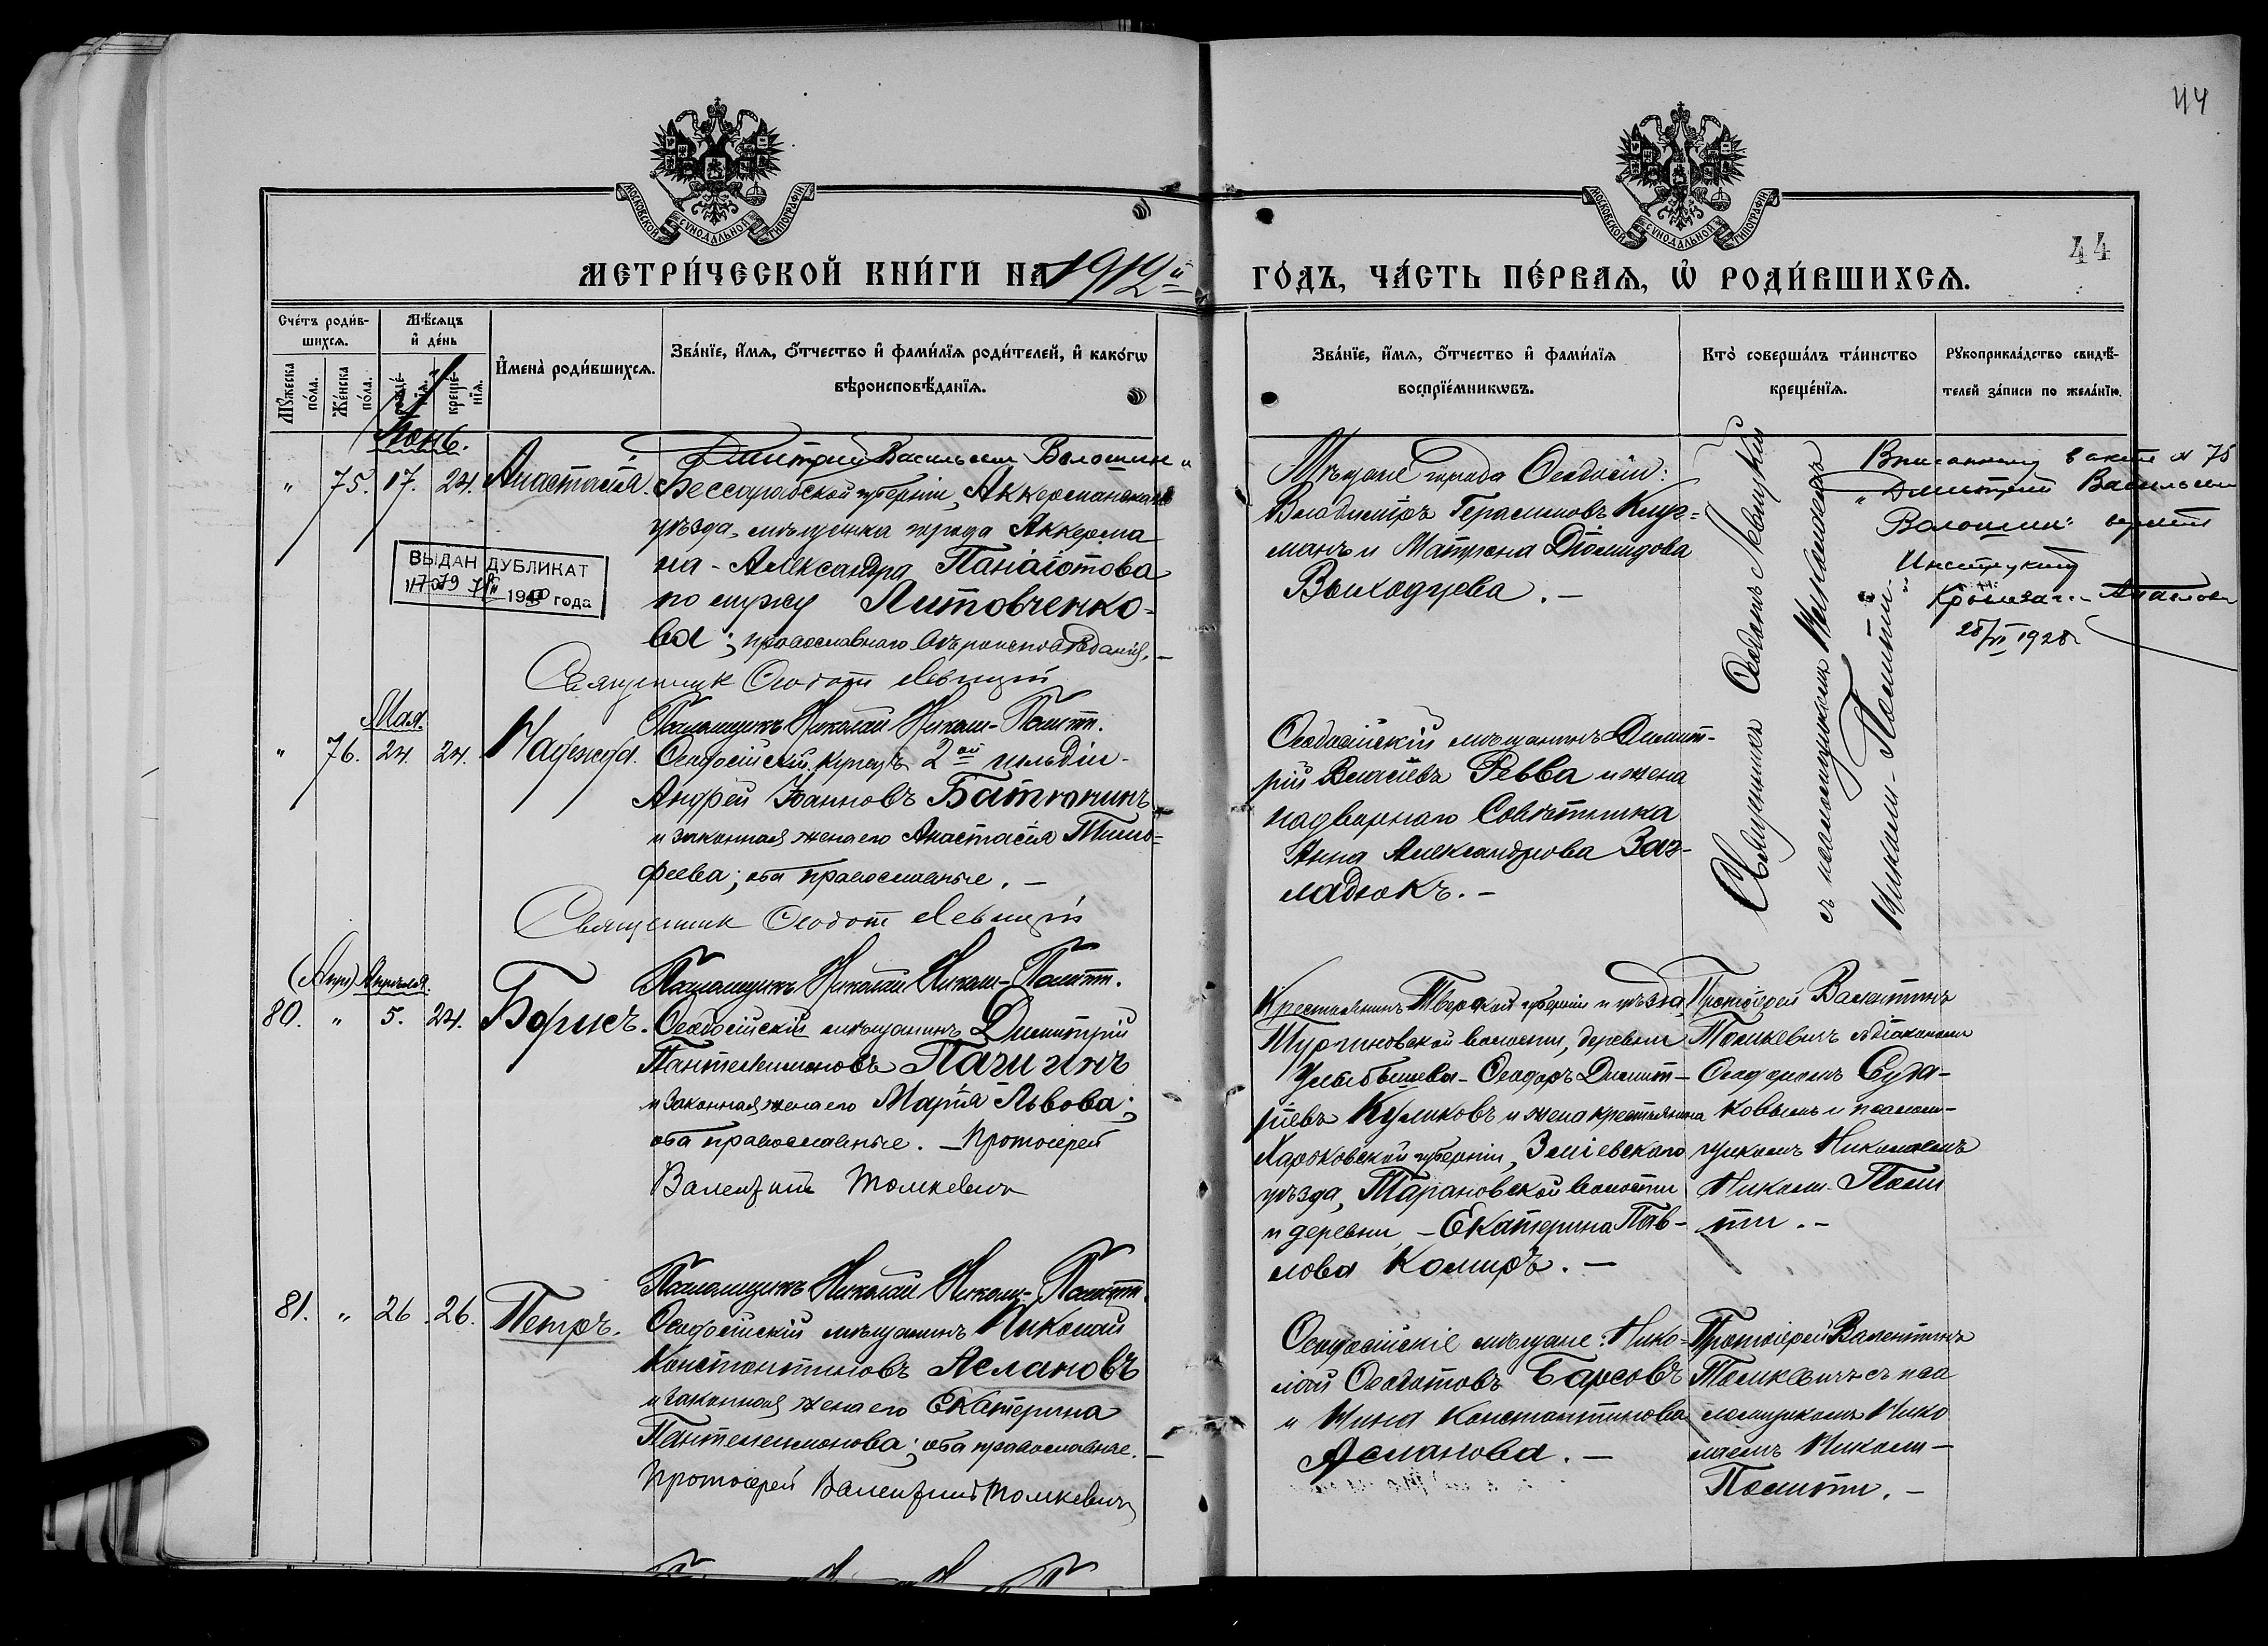 44
МОСКОВСКОЙ СѴНОДАЛЬНОЙ ТИПОГРАФІИ
МОСКОВСКОЙ СѴНОДАЛЬНОЙ ТИПОГРАФІИ
44
МЕТРИ́ЧЕСКОЙ КНИ́ГИ НА 1912й
ГО́ДЪ, ЧА́СТЬ ПЕ́РВАѦ, Ѡ҆ РОДИ́ВШИХСѦ.
Сче́тъ роди́в-
шихсѧ.
Мѣ́сѧцъ
и҆ де́нь
Мꙋ́жеска по́ла.
Же́нска по́ла.
рожде́-
нїѧ.
креще́-
нїѧ.
И҆мена̀ роди́вшихсѧ.
Зва́нїе, и҆́мѧ, ѻ҆́тчество и҆ фами́лїѧ роди́телей, и҆ како́гѡ
вѣроисповѣ́данїѧ.
Зва́нїе, и҆́мѧ, ѻ҆́тчество и҆ фами́лїѧ
воспрїе́мникѡвъ.
Кто̀ соверша́лъ та́инство
креще́нїѧ.
Рꙋкоприкла́дство свидѣ́-
телей за́писи по жела́нїю.
" 75. 17. 24. Анастасія
Дмитрий Васильевич Волошин
Бессарабской губерніи, Аккерманскаго
уѣзда, мѣщанка города Аккерма
на - Александра Панаіотова
по мужу Литовченко-
ва; православнаго вѣроисповѣданія. -
Священник Феодот Левицкій
ВЫДАН ДУБЛИКАТ
1940 года
Мѣщане города Феодосіи:
Владиміръ Герасимовъ Клуг=
манъ и Матрена Діомидова
Выходцева. -
Священникъ Феодотъ Левицкій
съ псаломщикомъ Николаемъ
Николаи-Политти.
в акте № 75
Дмитрий Васильевич
Волошин
28/VI 1928
Мая.
" 76. 24. 24. Надежда.
Псаломщикъ Николай Николаи-Политти.
Феодосійскій купецъ 2ой гильдіи -
Андрей Іоанновъ Батюнинъ
и законная жена его Анастасія Тимо=
феева; оба православные. -
Священник Феодот Левицкій
Феодосійскій мѣщанинъ Димит-
рій Власіевъ Ревва и жена
надворнаго Совѣтника
Анна Александрова Заг-
ладюкъ. -
(Апр) Апрѣля.
80. " 5. 24. Борисъ.
Псаломщикъ Николай Николаи-Политти.
Феодосійскій мѣщанинъ Димитрій
Пантелеимоновъ Пачигинъ
и законная жена его Марія Львова;
оба православные. - Протоіерей
Валентинъ Томкевичъ
Крестьянинъ Тверской губерніи и уѣзда
Тургиновской волости, деревни
Улыбышева - Феодоръ Димит-
ріевъ Куликовъ и жена крестьянина
Харьковской губерніи, Зміевскаго
уѣзда, Тарановской волости
и деревни, - Екатерина Пав-
лова Комиръ. -
Протоіерей Валентинъ
Томкевичъ съ діакономъ
Феодоромъ Суда-
ковымъ и псалом-
щикомъ Николаемъ
Николаи-Поли
тти. -
81. " 26. 26. Петръ.
Псаломщикъ Николай Николаи-Политти.
Феодосійскій мѣщанинъ Николай
Константиновъ Аслановъ
и законная жена его Екатерина
Пантелеимонова; оба православные. -
Протоіерей Валентинъ Томкевичъ
Феодосійскіе мѣщане: Нико=
лай Феодотовъ Барсовъ
и Нина Константинова
Асланова. -
Протоіерей Валентинъ
Томкевичъ съ пса
ломщикомъ Нико
лаемъ Николаи-
Политти. -